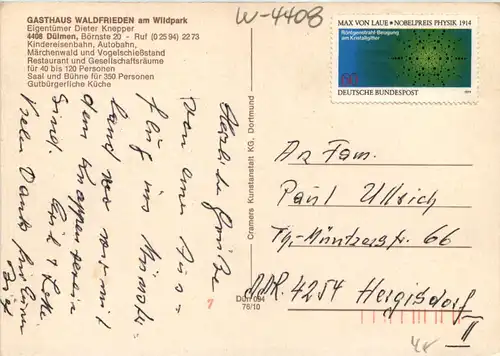 GASTHAUS WALDFRIEDEN am Wildpark
Eigentümer Dieter Knepper
4408 Dülmen, Börnste 20 - Ruf (0 25 94) 22 73
Kindereisenbahn, Autobahn,
Märchenwald und Vogelschießstand
Restaurant und Gesellschaftsräume
für 40 bis 120 Personen
Saal und Bühne für 350 Personen
Gutbürgerliche Küche
W-4408
MAX VON LAUE • NOBELPREIS PHYSIK 1914
Röntgenstrahl-Beugung
am Kristallgitter
50
1979
DEUTSCHE BUNDESPOST
Herzliche Grüße
von einem Aus-
flug ins Münster-
land wo wir mit
dem Knappenverein
sind.
Vielen Dank für Euren
Brief
Cramers Kunstanstalt KG, Dortmund
Dün 094
76/10
An Fam.
Paul Ullrich
Th.-Müntzerstr 66
DDR. 4254 Hergisdorf
II